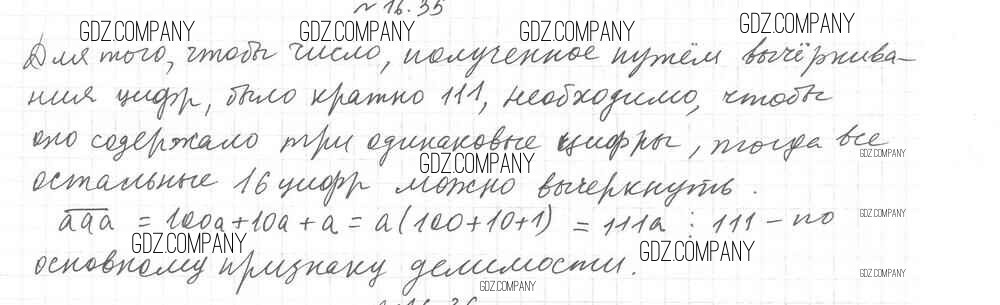 №16.35
GDZ.COMPANY GDZ.COMPANY GDZ.COMPANY GDZ.COMPANY
Для того, чтобы число, полученное путём вычёркива-
ния цифр, было кратно 111, необходимо, чтобы
оно содержало три одинаковые цифры, тогда все
GDZ.COMPANY GDZ.COMPANY
остальные 16 цифр можно вычеркнуть.
aaa = 100a+10a+a = a(100+10+1) = 111a ⋮ 111 – по
GDZ.COMPANY
GDZ.COMPANY GDZ.COMPANY
основному признаку делимости.
GDZ.COMPANY
GDZ.COMPANY